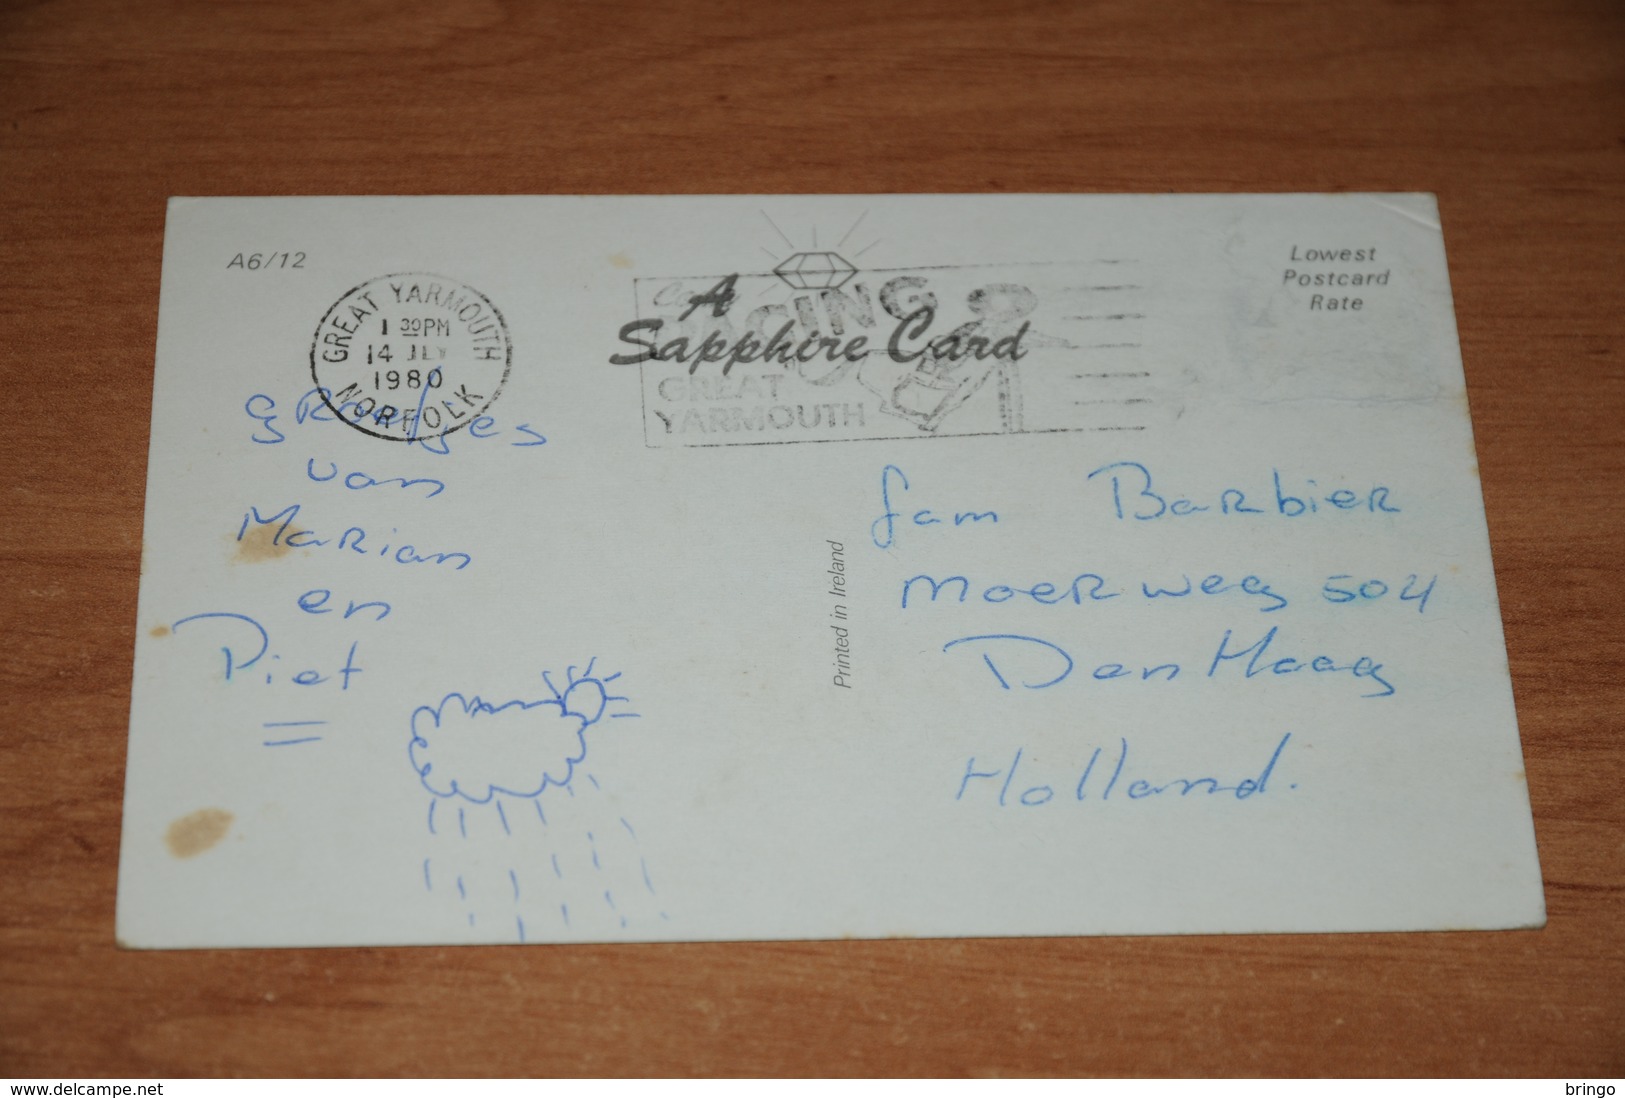 A6/12
GREAT YARMOUTH
1 30PM
14 JLY
1980
NORFOLK
RACING
GREAT
YARMOUTH
A
Sapphire Card
Lowest
Postcard
Rate
groetjes
van
Marian
en
Piet
Printed in Ireland
fam Barbier
Moerweg 504
Den Haag
Holland.
www.delcampe.net
bringo